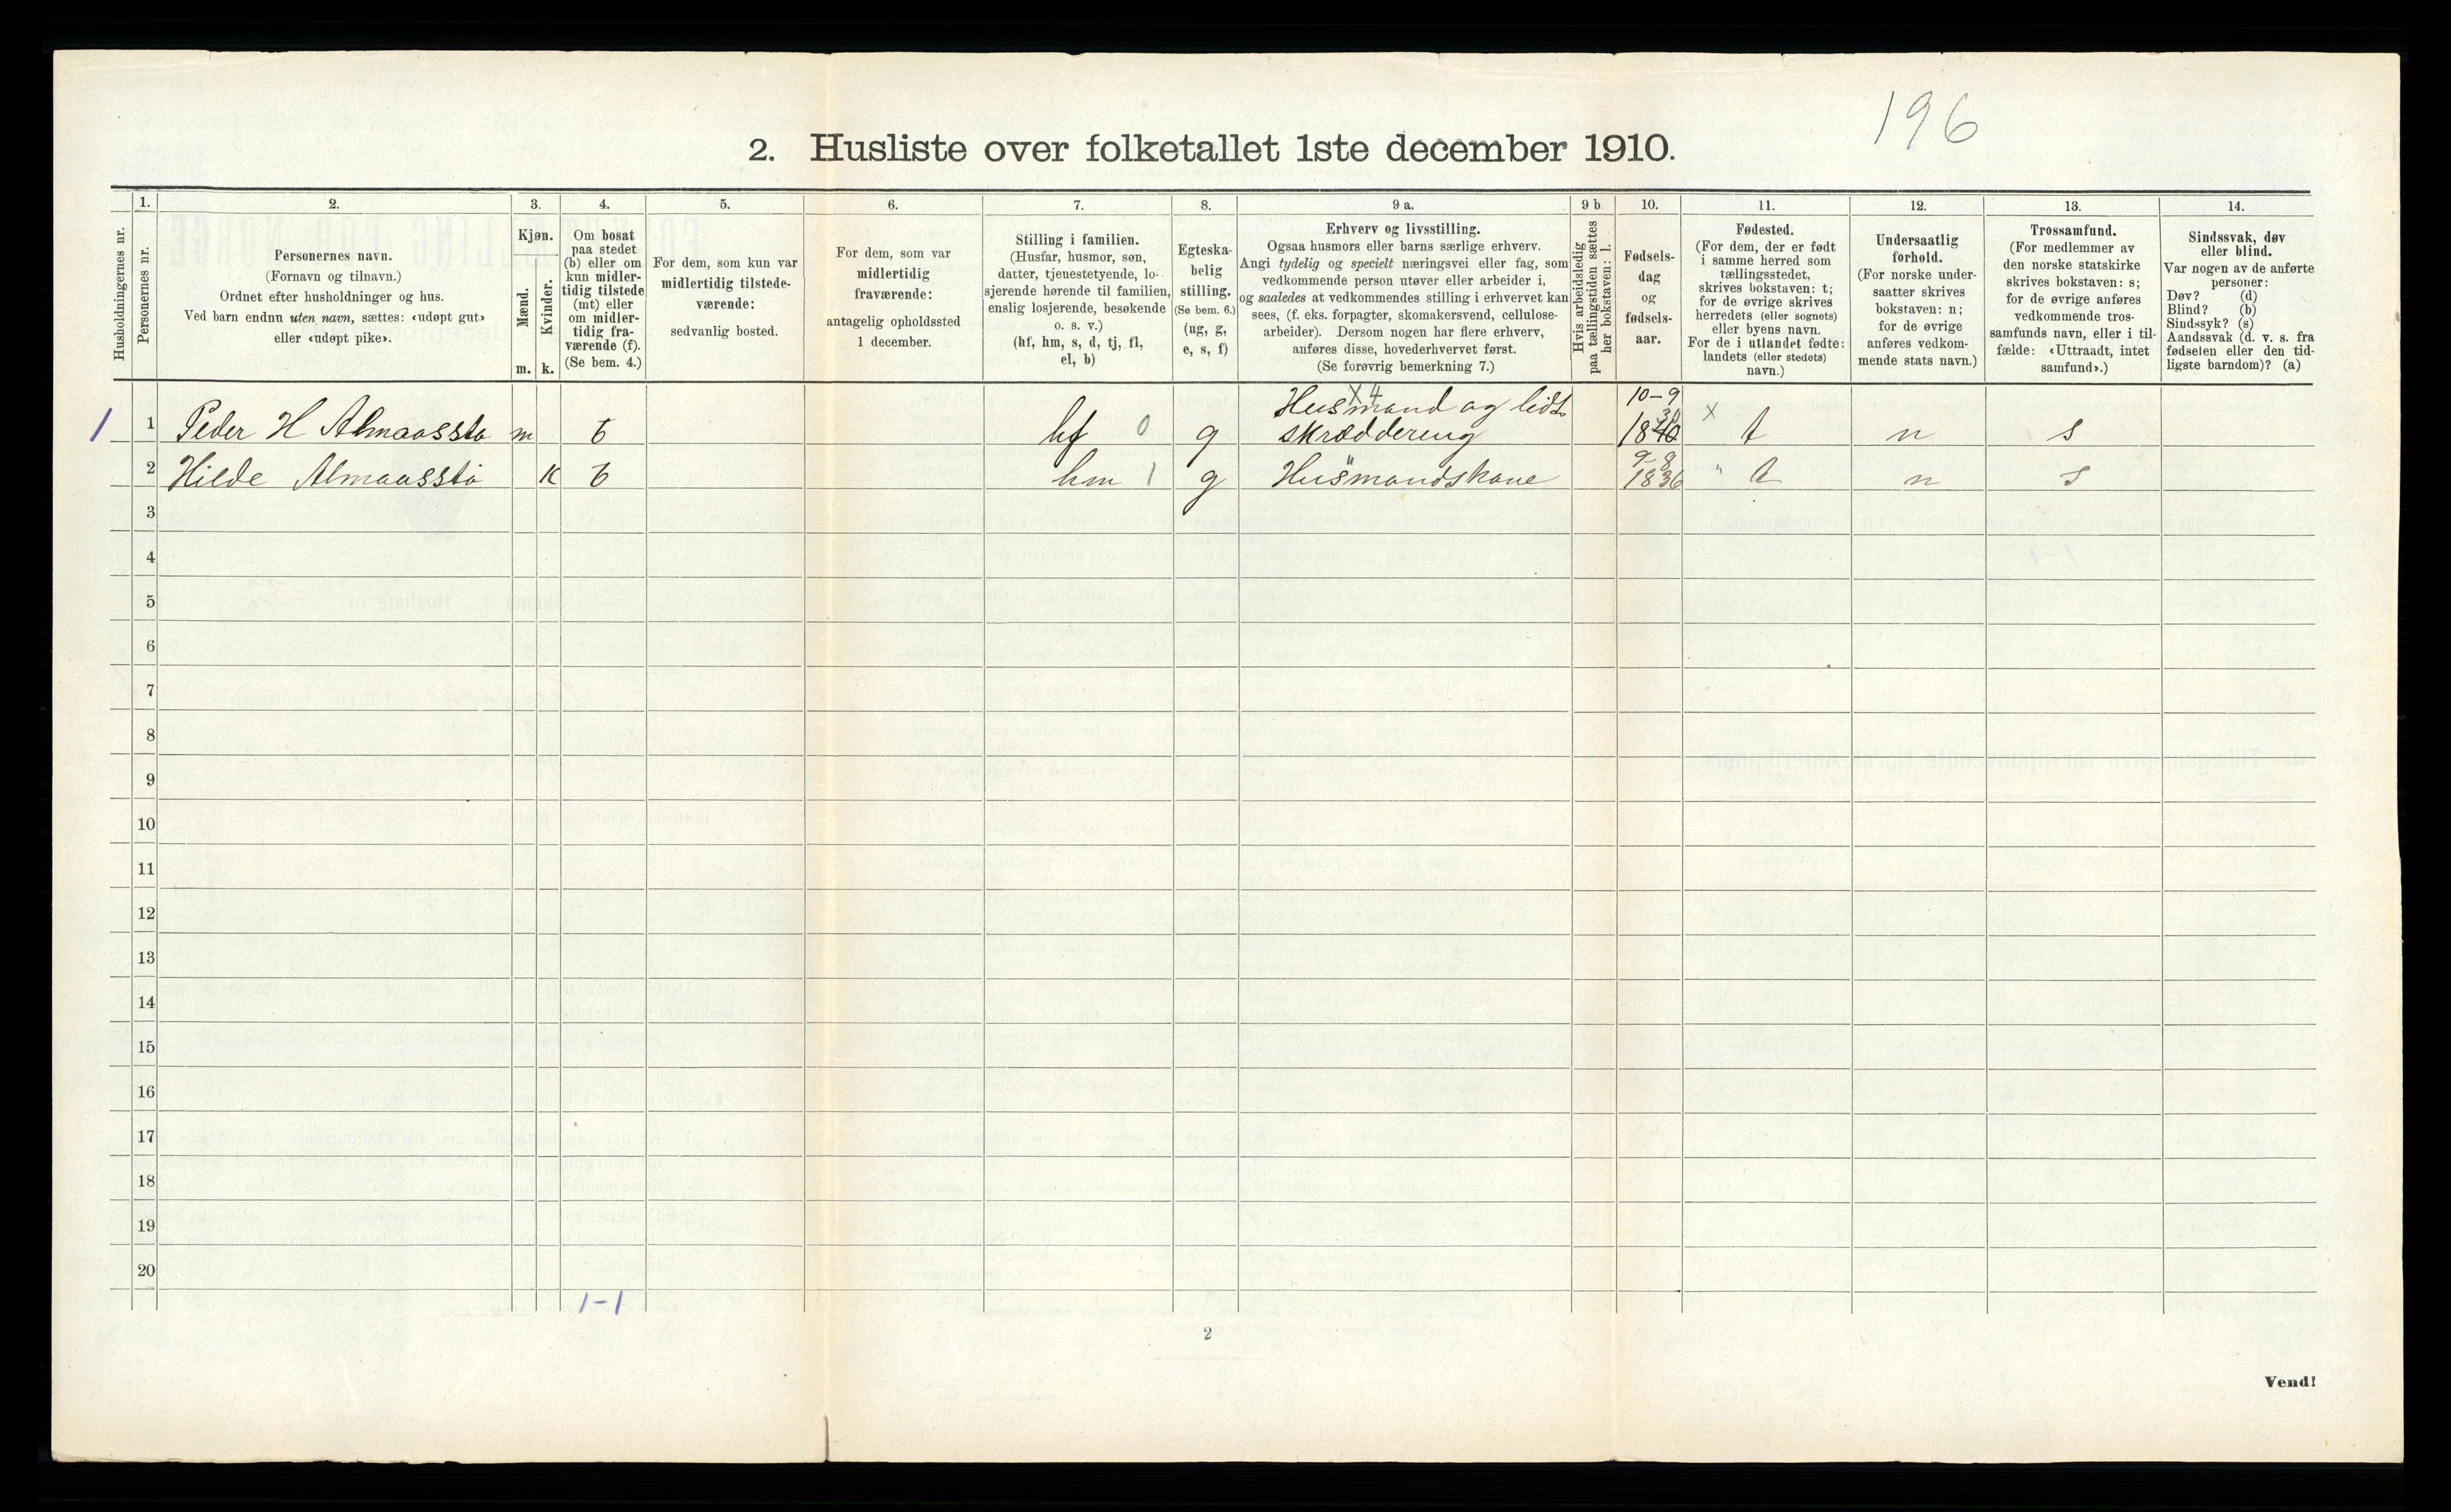 196
2. Husliste over folketallet 1ste december 1910.
Husholdningernes nr.
1.
Personernes nr.
2.
Personernes navn.
(Fornavn og tilnavn.)
Ordnet efter husholdninger og hus.
Ved barn endnu uten navn, sættes: «udøpt gut»
eller «udøpt pike».
3.
Kjøn.
Mænd.
m.
Kvinder.
k.
4.
Om bosat
paa stedet
(b) eller om
kun midler-
tidig tilstede
(mt) eller
om midler-
tidig fra-
værende (f).
(Se bem. 4.)
5.
For dem, som kun var
midlertidig tilstede-
værende:
sedvanlig bosted.
6.
For dem, som var
midlertidig
fraværende:
antagelig opholdssted
1 december.
7.
Stilling i familien.
(Husfar, husmor, søn,
datter, tjenestetyende, lo-
sjerende hørende til familien,
enslig losjerende, besøkende
o. s. v.)
(hf, hm, s, d, tj, fl,
el, b)
8.
Egteska-
belig
stilling.
(Se bem. 6.)
(ug, g,
e, s, f)
9 a.
Erhverv og livsstilling.
Ogsaa husmors eller barns særlige erhverv.
Angi tydelig og specielt næringsvei eller fag, som
vedkommende person utøver eller arbeider i,
og saaledes at vedkommendes stilling i erhvervet kan
sees, (f. eks. forpagter, skomakersvend, cellulose-
arbeider). Dersom nogen har flere erhverv,
anføres disse, hovederhvervet først.
(Se forøvrig bemerkning 7.)
9 b
Hvis arbeidsledig
paa tællingstiden sættes
her bokstaven: l.
10.
Fødsels-
dag
og
fødsels-
aar.
11.
Fødested.
(For dem, der er født
i samme herred som
tællingsstedet,
skrives bokstaven: t;
for de øvrige skrives
herredets (eller sognets)
eller byens navn.
For de i utlandet fødte:
landets (eller stedets)
navn.)
12.
Undersaatlig
forhold.
(For norske under-
saatter skrives
bokstaven: n;
for de øvrige
anføres vedkom-
mende stats navn.)
13.
Trossamfund.
(For medlemmer av
den norske statskirke
skrives bokstaven: s;
for de øvrige anføres
vedkommende tros-
samfunds navn, eller i til-
fælde: «Uttraadt, intet
samfund».)
14.
Sindssvak, døv
eller blind.
Var nogen av de anførte
personer:
Døv? (d)
Blind? (b)
Sindssyk? (s)
Aandssvak (d. v. s. fra
fødselen eller den tid-
ligste barndom)? (a)
X 4
Husmand og lidt 10-9
1 1 Peder H Almaasstø m b hf 0 g skræddering 18 30 X t n s
9-8
2 Hilde Almaasstø K b hm 1 g Husmandskone 1836 " t n s
3
4
5
6
7
8
9
10
11
12
13
14
15
16
17
18
19
20
1-1
2
Vend!